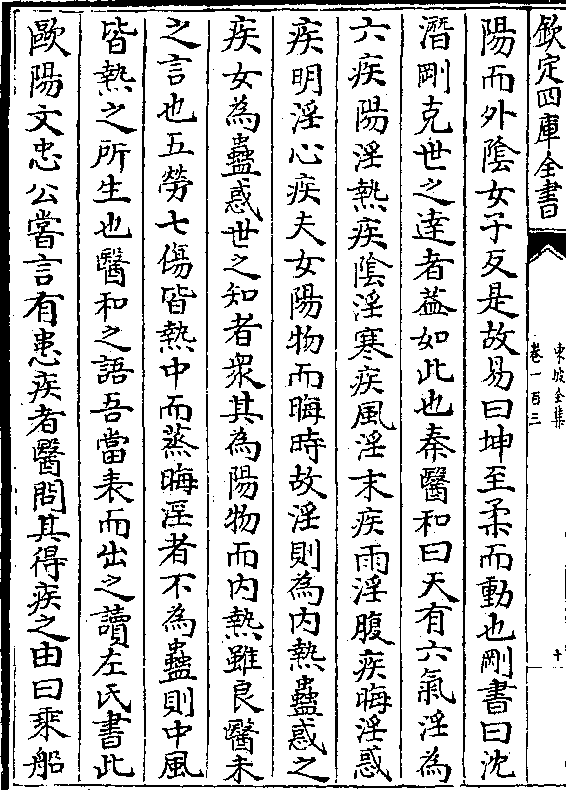 欽定四庫全書
東坡全集
卷一百三
十
陽而外陰女子反是故易曰坤至柔而動也剛書曰沈
潛剛克世之達者蓋如此也秦醫和曰天有六氣淫為
六疾陽淫熱疾陰淫寒疾風淫末疾雨淫腹疾晦淫惑
疾明淫心疾夫女陽物而晦時故淫則為内熱蠱惑之
疾女為蠱惑世之知者衆其為陽物而内熱雖良醫未
之言也五勞七傷皆熱中而蒸晦淫者不為蠱則中風
皆熱之所生也醫和之語吾當表而出之讀左氏書此
歐陽文忠公嘗言有患疾者醫問其得疾之由曰乘船